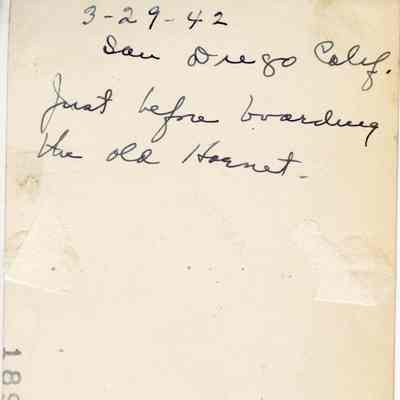 3-29-42
San Diego Calif.
Just before boarding
the old Hornet.
189